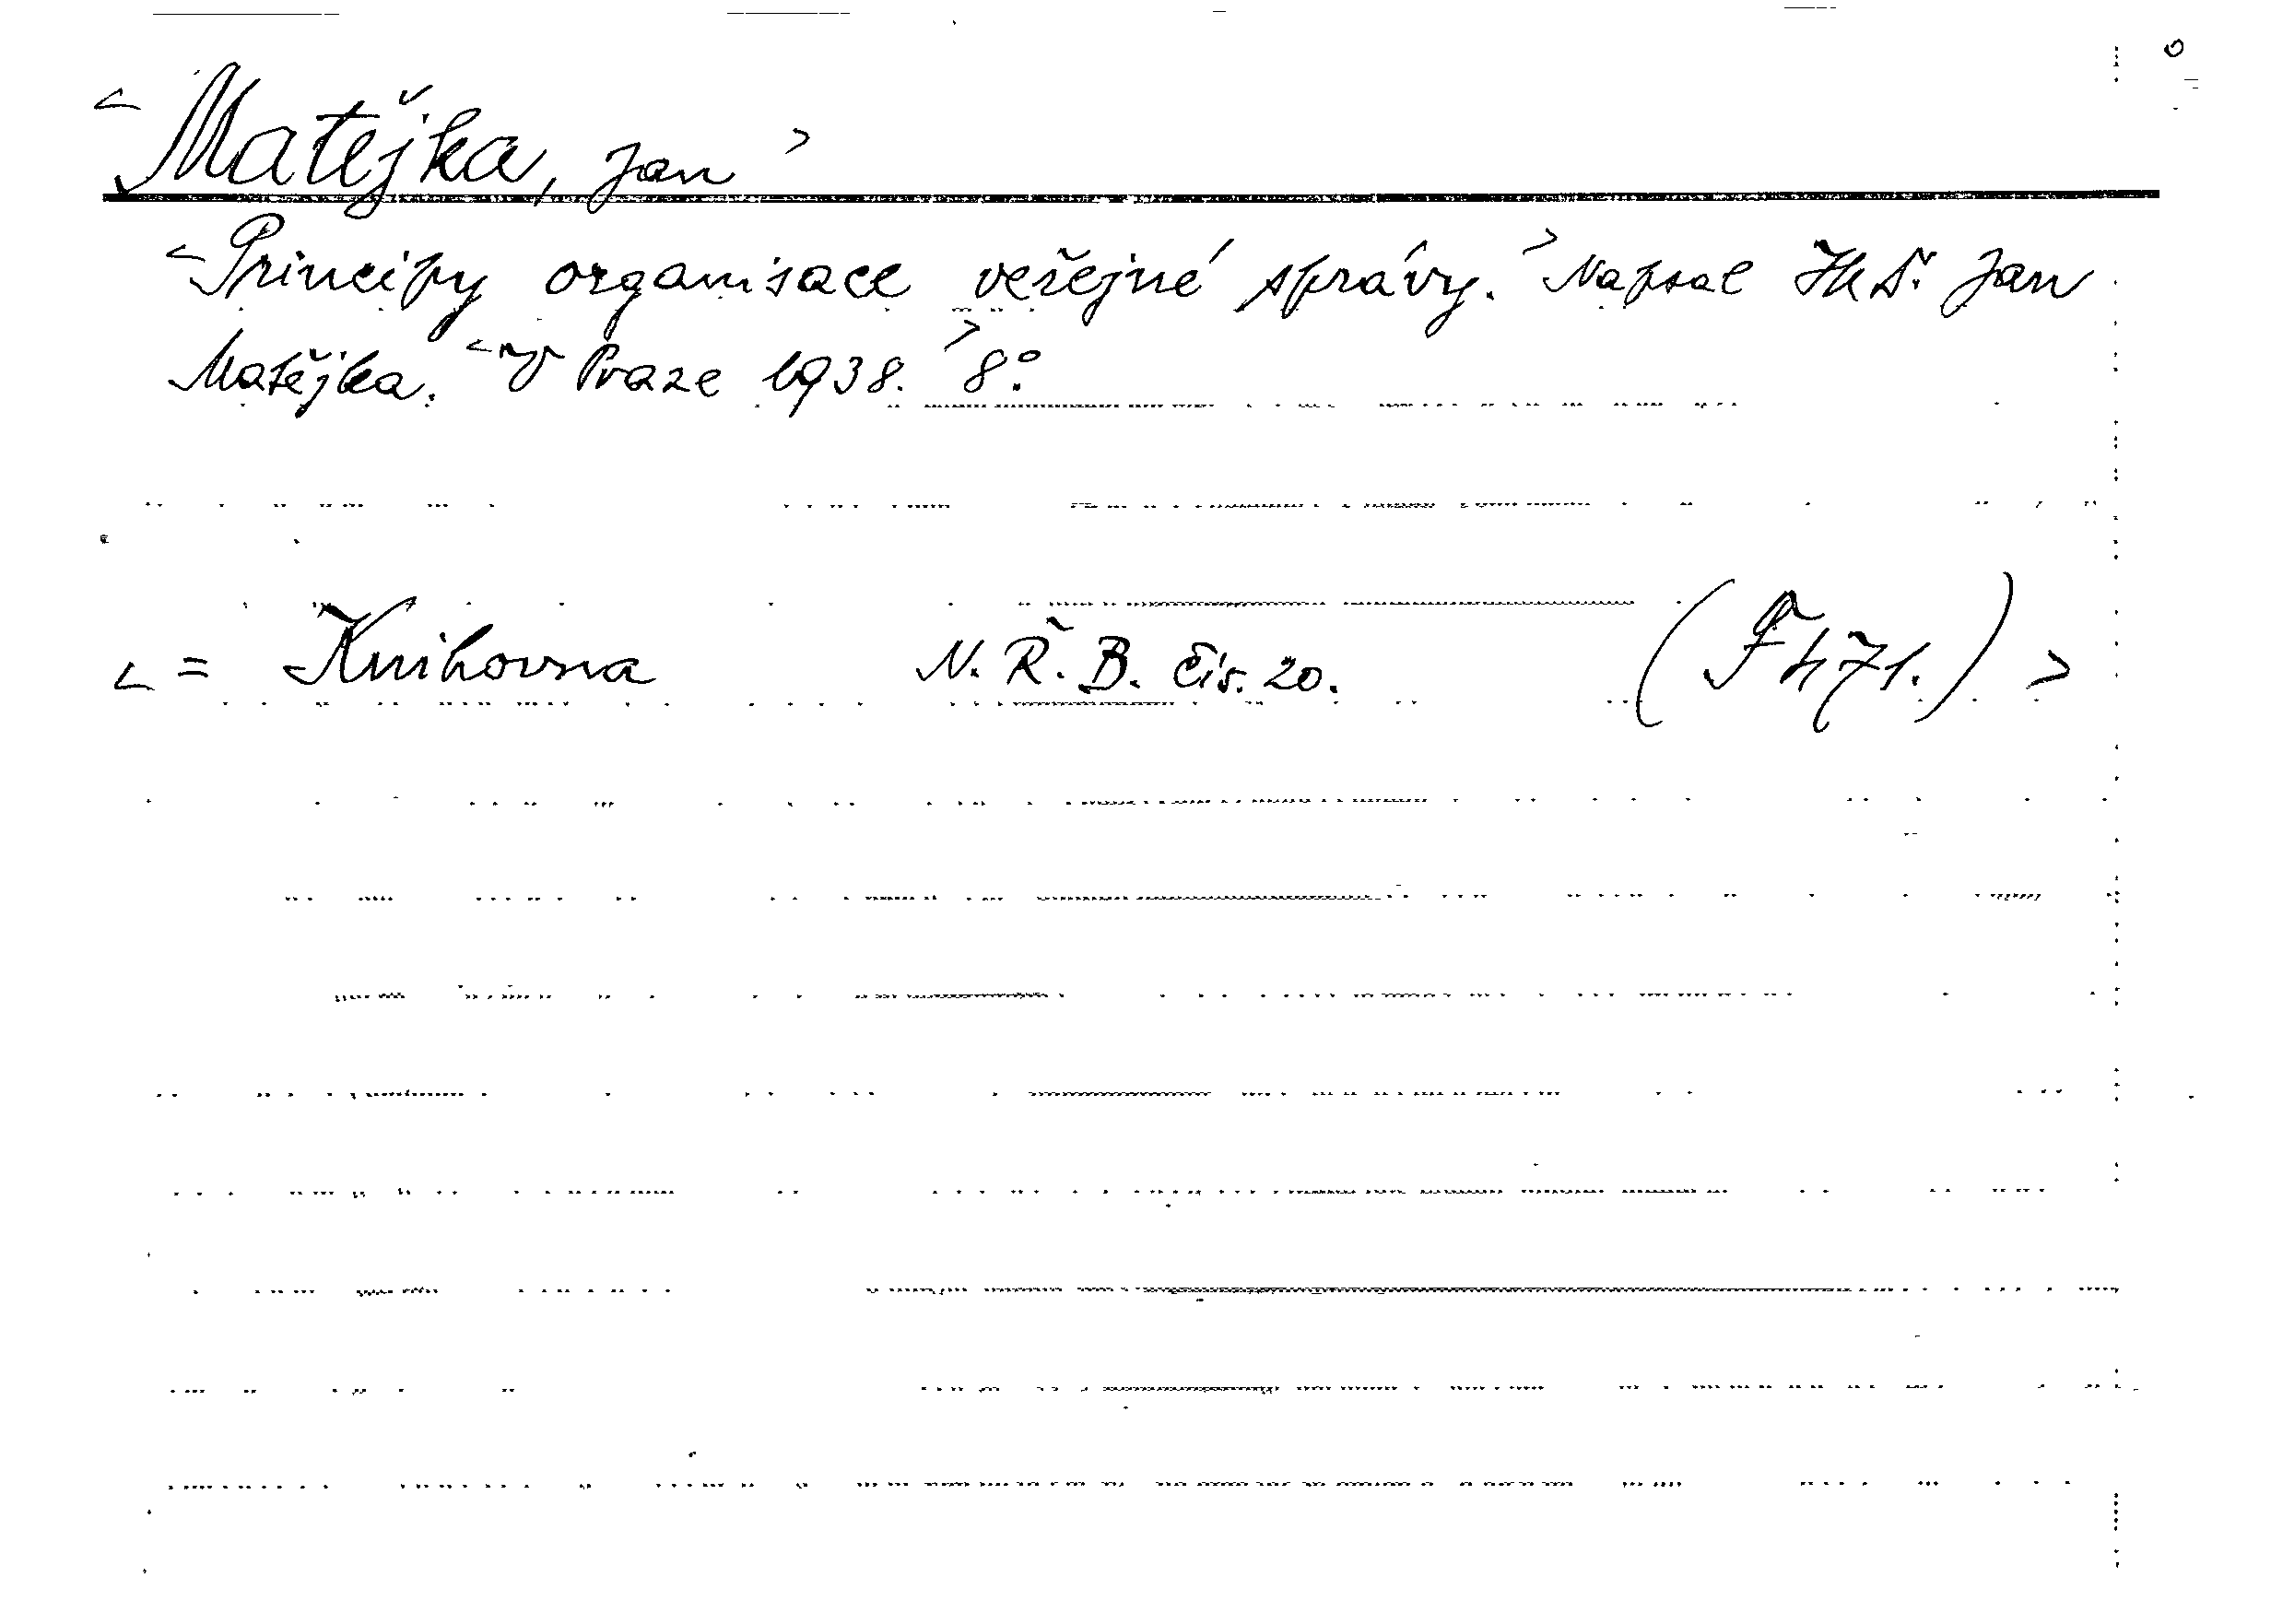 < Matějka, Jan >
< Principy organisace veřejné správy. > Napsal JUDr. Jan
Matějka. < V Praze 1938. > 8°.
< = Knihovna N. Ř. B. čís. 20. (F 471.) >